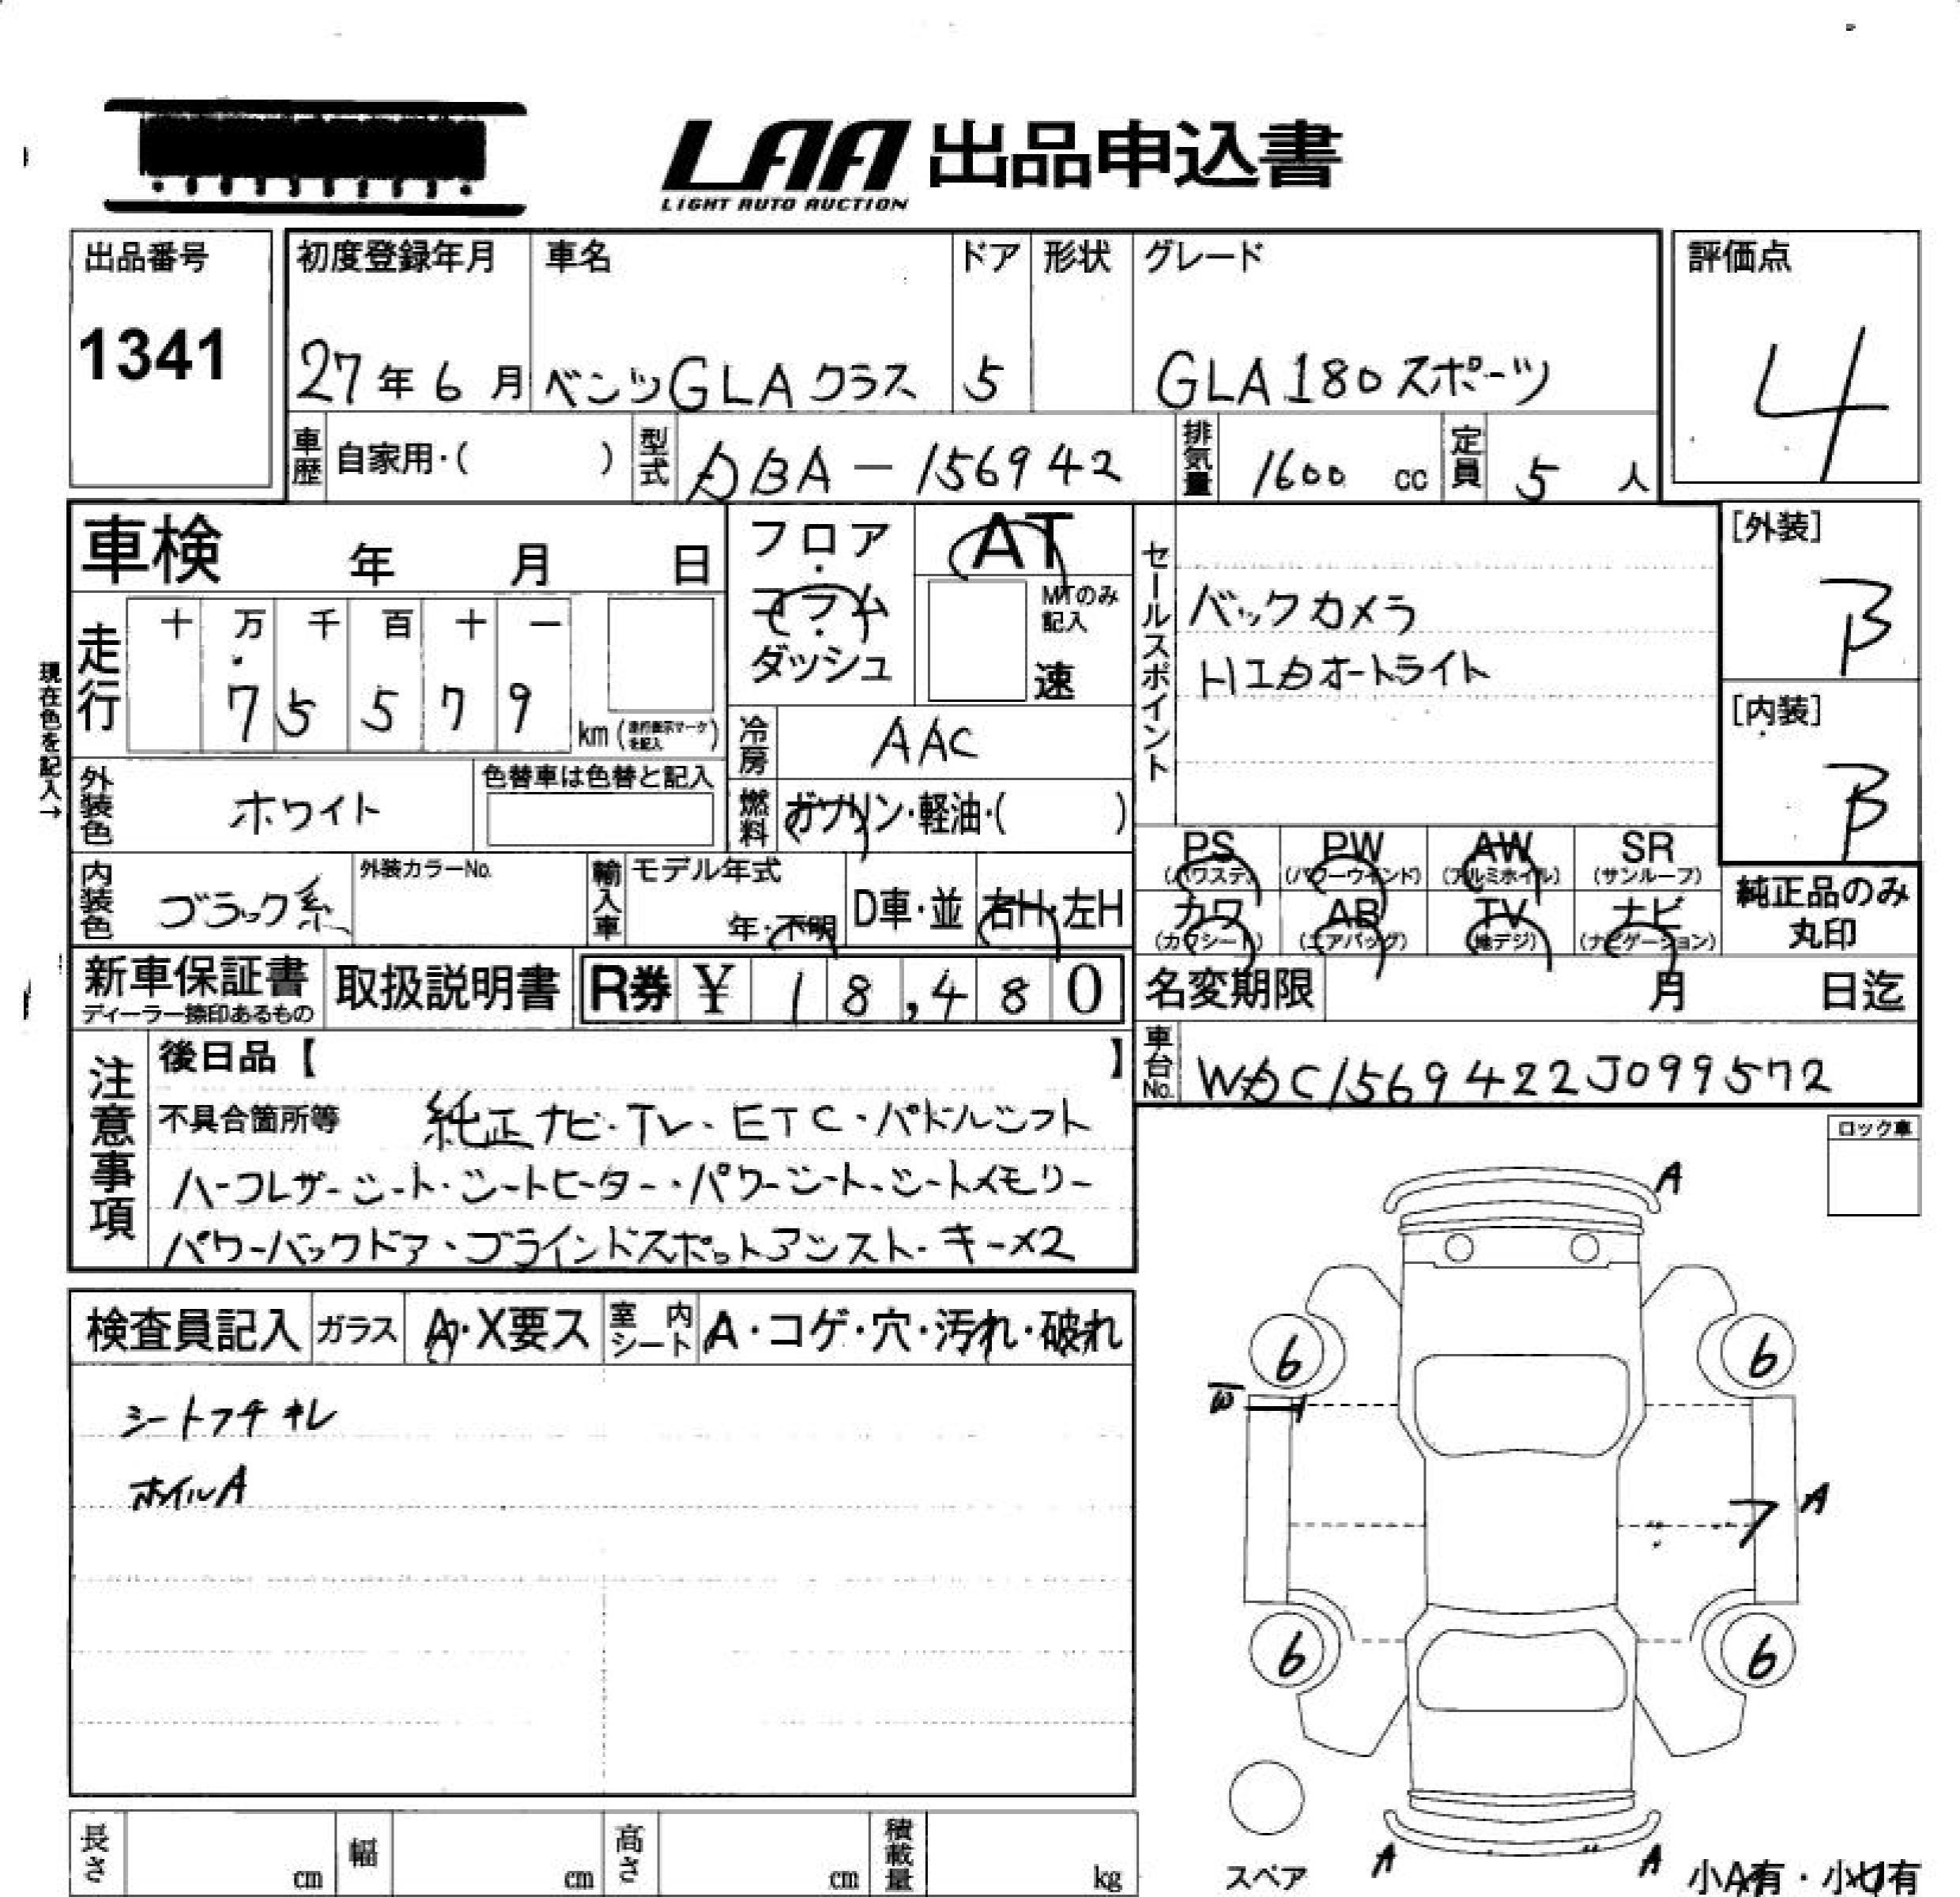 LAA 出品申込書
LIGHT AUTO AUCTION
出品番号
1341
初度登録年月 車名 ドア 形状 グレード
27年6月 ベンツGLAクラス 5 GLA180スポーツ
評価点
4
車歴 自家用・( ) 型式 DBA-156942 排気量 1600 cc 定員 5 人
車検 年 月 日
フロア・コラム・ダッシュ
AT
MTのみ記入
速
セールスポイント
バックカメラ
HIDオートライト
[外装]
B
[内装]
B
現在色を記入→
走行 十 万 千 百 十 一
7 5 5 7 9 km (走行表示マークを記入)
冷房 AAC
外装色 ホワイト 色替車は色替と記入
燃料 ガソリン・軽油・( )
内装色 ブラック系 外装カラーNo. 輸入車 モデル年式 年・不明 D車・並 右H・左H
PS (パワステ) PW (パワーウインド) AW (アルミホイル) SR (サンルーフ)
カワ (カワシート) AB (エアバッグ) TV (地デジ) ナビ (ナビゲーション)
純正品のみ丸印
新車保証書 ディーラー捺印あるもの 取扱説明書 R券 ¥ 18,480
名変期限 月 日迄
車台No. WDC1569422J099572
注意事項
後日品【 】
不具合箇所等 純正ナビ・TV・ETC・パドルシフト
ハーフレザーシート・シートヒーター・パワーシート・シートメモリー
パワーバックドア・ブラインドスポットアシスト・キー×2
ロック車
検査員記入 ガラス A・X要ス 室内シート A・コゲ・穴・汚れ・破れ
シートフチキレ
ホイルA
A
6 6
W
フ A
6 6
A A
スペア
小A有・小U有
長さ cm 幅 cm 高さ cm 積載量 kg